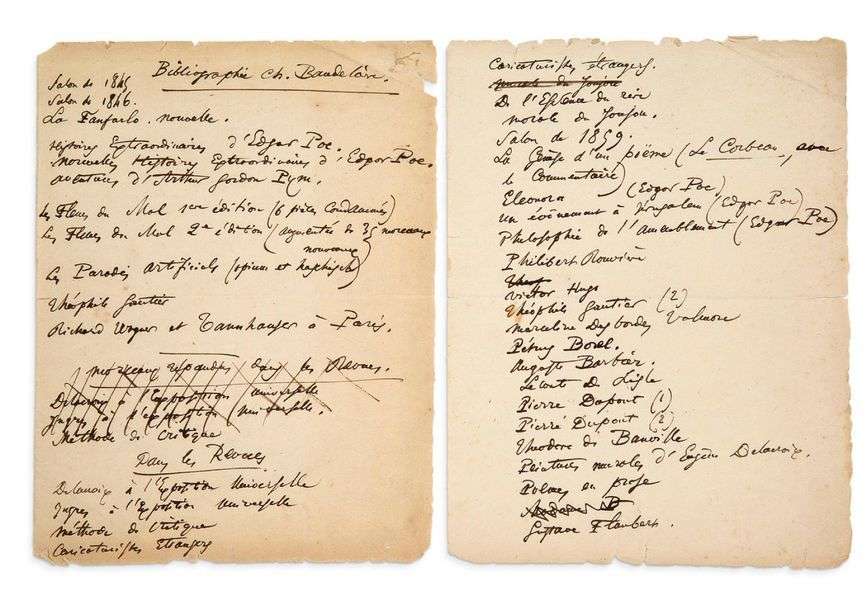 Bibliographie Ch. Baudelaire.
Salon de 1845
Salon de 1846.
La Fanfarlo. nouvelle.
Histoires Extraordinaires d'Edgar Poe.
nouvelles Histoires Extraordinaires d'Edgar Poe.
aventures d'Arthur Gordon Pym.
Les Fleurs du Mal 1ère édition (6 pièces Condamnées)
Les Fleurs du Mal 2e édition (augmentée de 35 morceaux
nouveaux)
Les Paradis Artificiels (opium et haschisch)
Théophile Gautier
Richard Wagner et Tannhauser à Paris.
morceaux répandus dans les Revues.
Delacroix à l'exposition universelle
Ingres à l'exposition Universelle.
Méthode de Critique
Dans les Revues
Delacroix à l'Exposition Universelle
Ingres à l'Exposition Universelle
Méthode de Critique
Caricaturistes Etrangers
Caricaturistes étrangers.
morale du Joujou
De l'Essence du rire
morale du Joujou.
Salon de 1859.
La Genèse d'un poëme (Le Corbeau, avec
le Commentaire)
Eleonora (Edgar Poe)
un événement à Jérusalem (Edgar Poe)
Philosophie de l'Ameublement (Edgar Poe)
Philibert Rouvière
Victor Hugo
Théophile Gautier (2)
marceline Desbordes Valmore
Pétrus Borel.
Auguste Barbier.
Leconte de Lisle
Pierre Dupont (1)
Pierre Dupont (2)
Théodore de Banville
Peintures murales d'Eugène Delacroix.
Poëmes en prose
Gustave Flaubert.